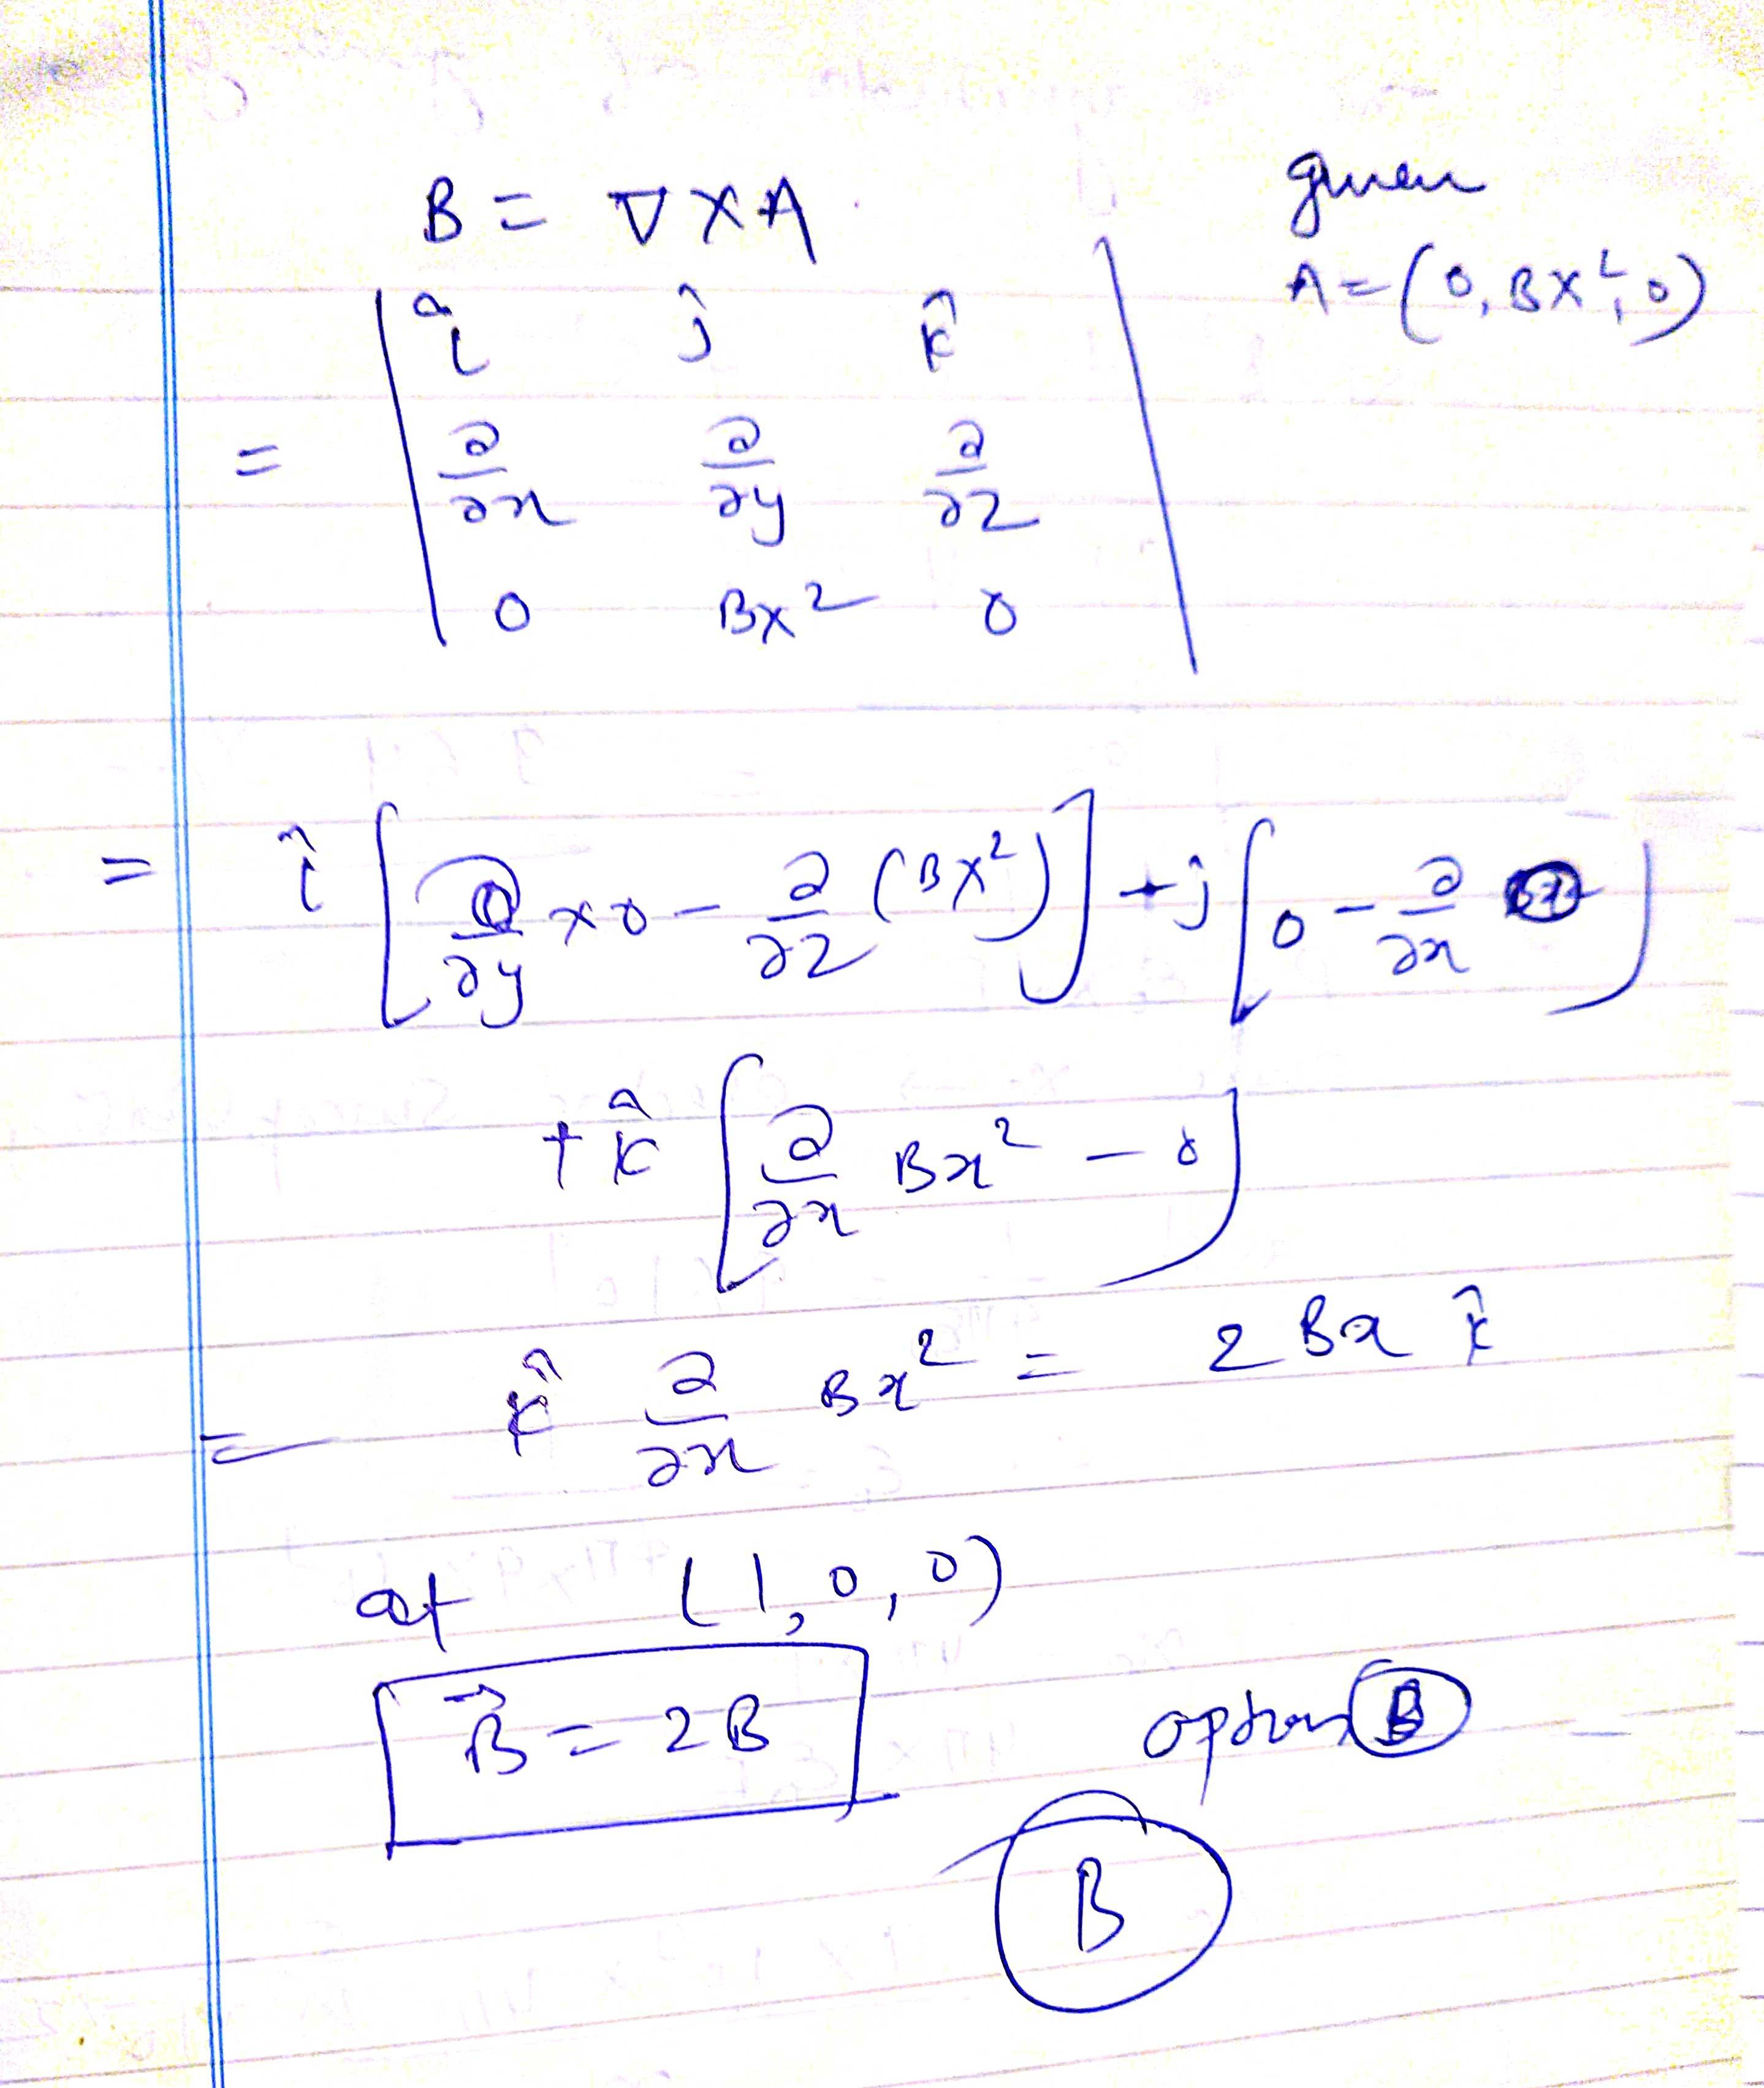 B = ∇ X A
given
A = (0, BX², 0)
î ĵ k̂
= ∂/∂x ∂/∂y ∂/∂z
0 BX² 0
= î [∂/∂y × 0 − ∂/∂z (BX²)] + j [0 − ∂/∂x ]
+ k̂ [∂/∂x Bx² − 0]
= k̂ ∂/∂x Bx² = 2 Bx k̂
at (1, 0, 0)
B⃗ = 2B
option B
B